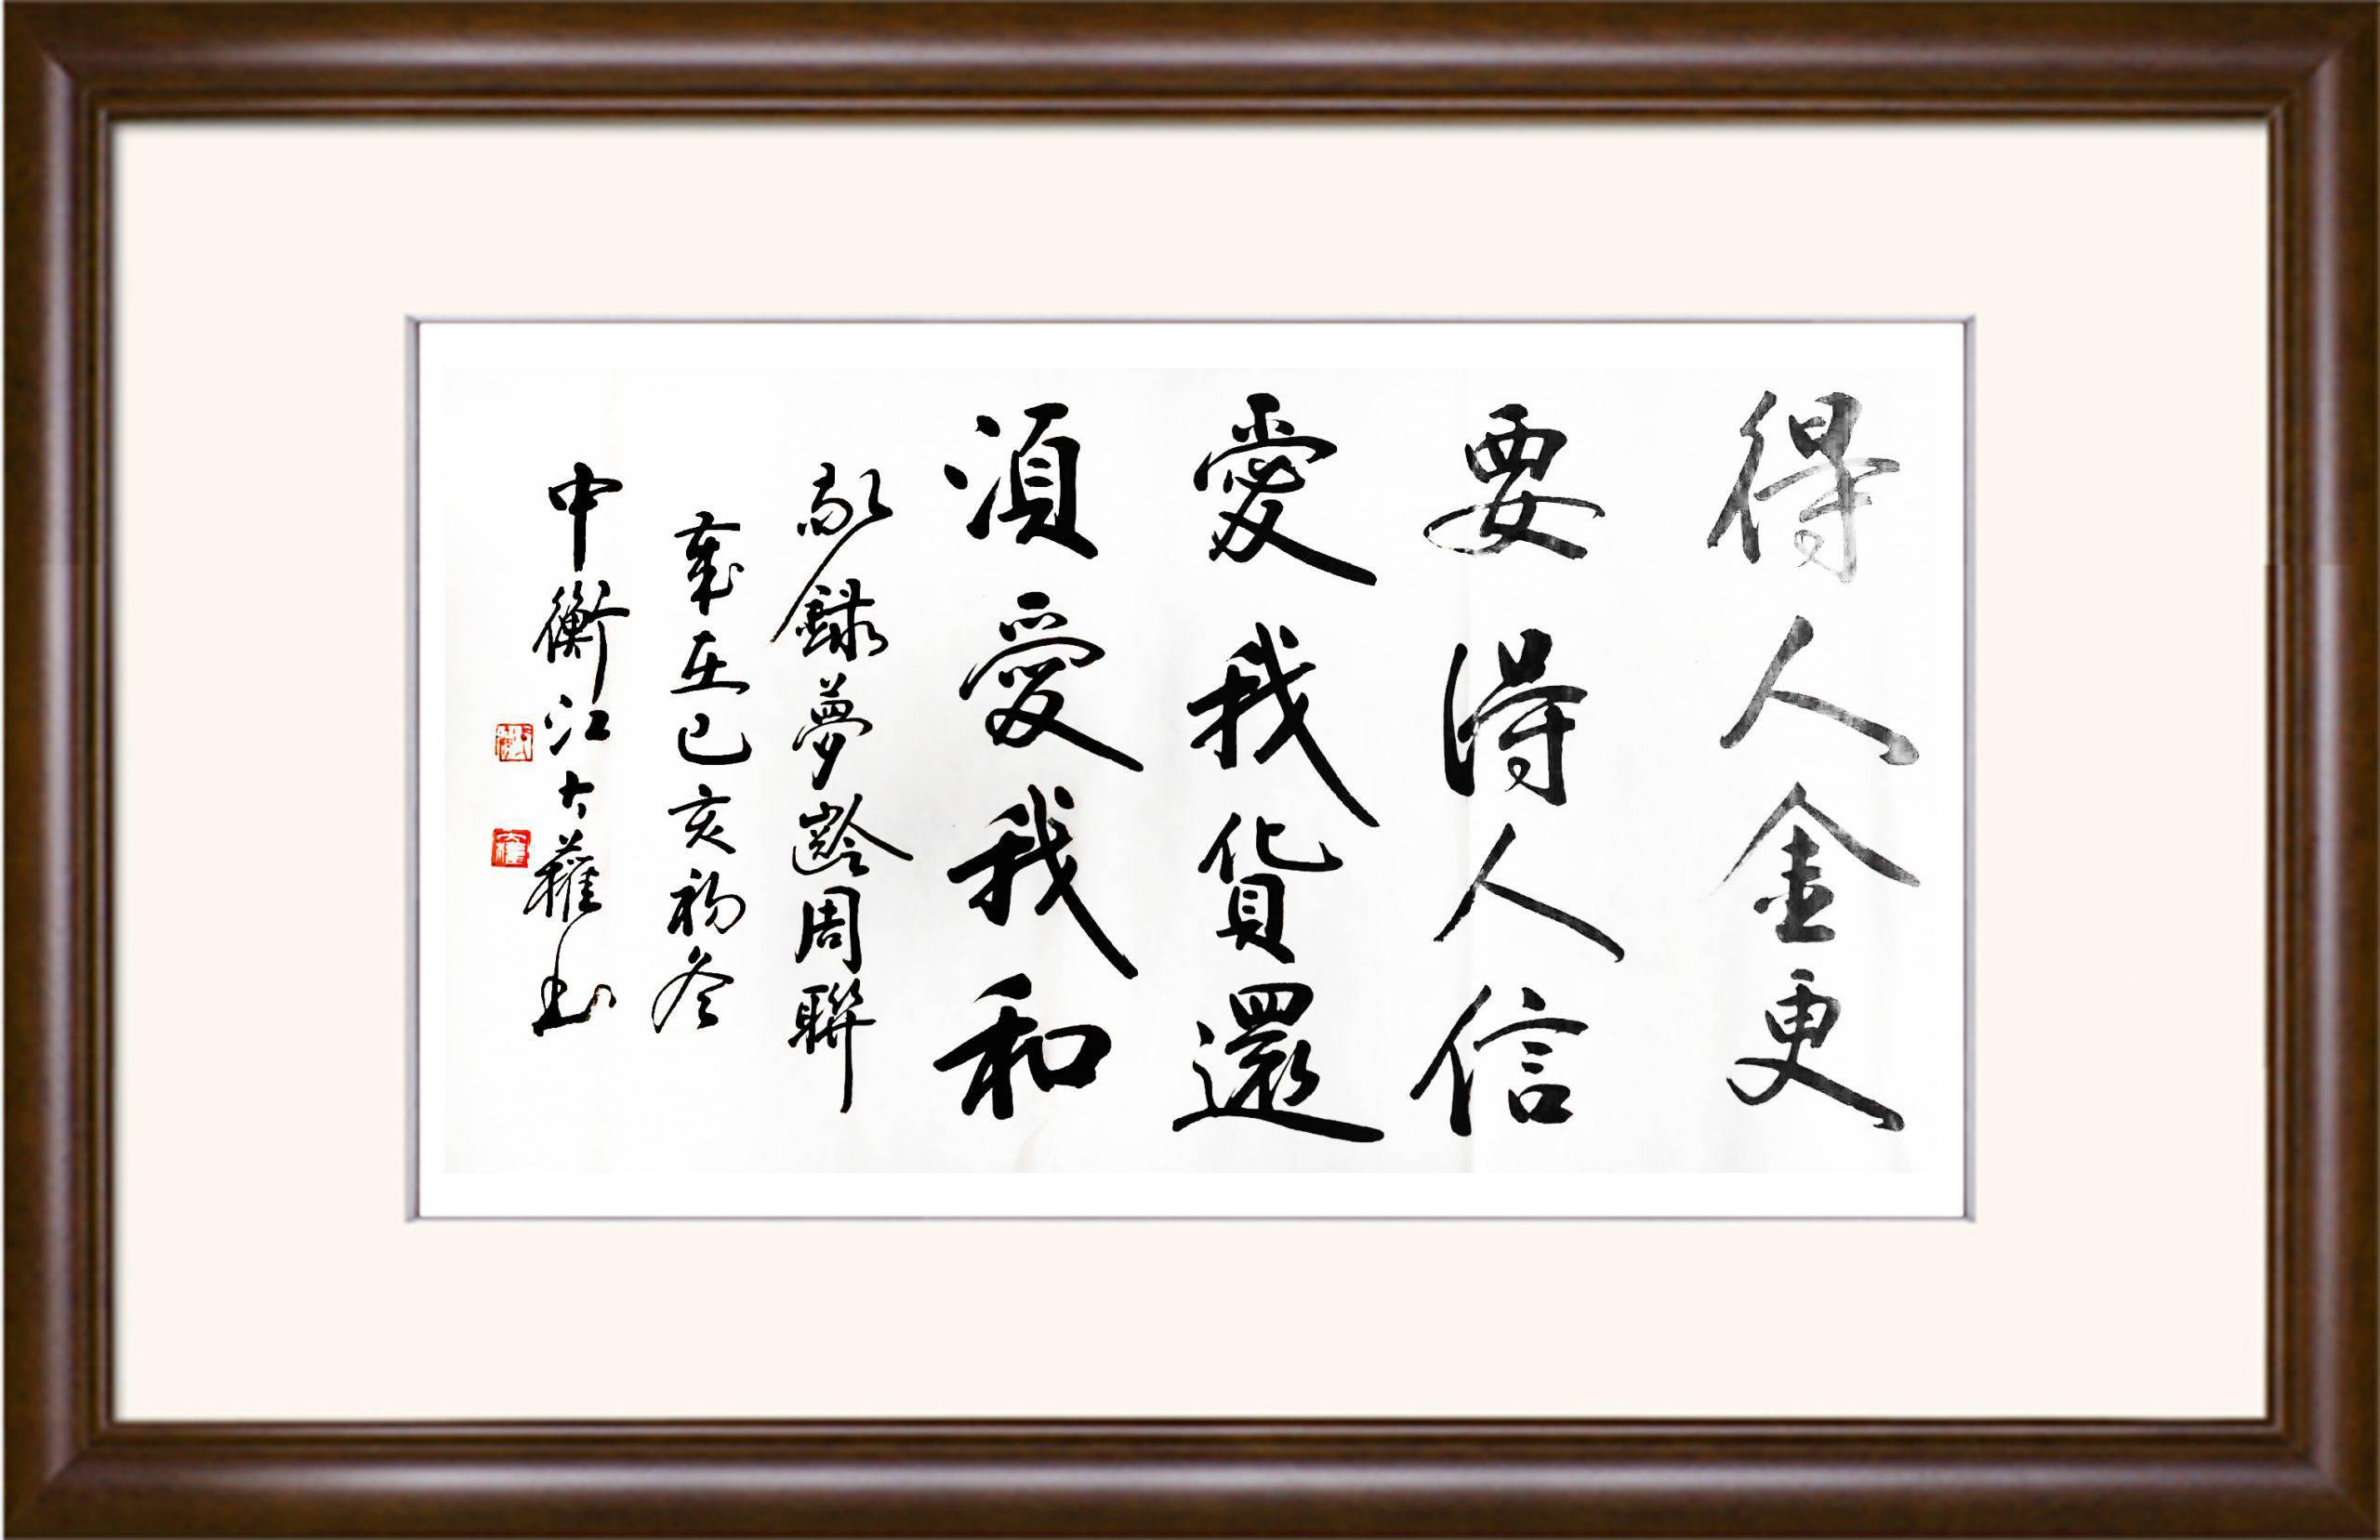 得人金更
要得人信
愛我貨還
須愛我和
敬錄夢齡周聯
歲在己亥初冬
中衡江大蘿書